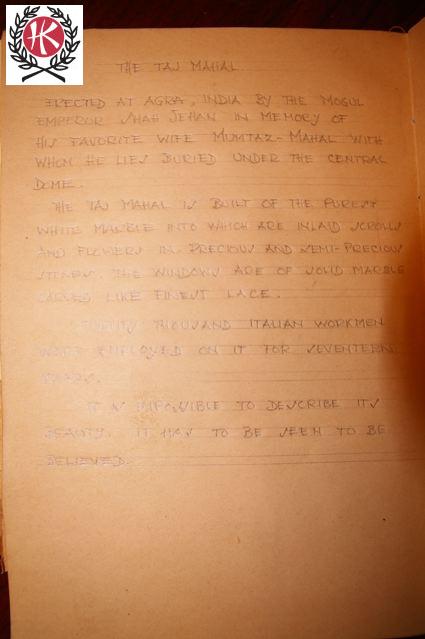 HK
THE TAJ MAHAL
ERECTED AT AGRA, INDIA BY THE MOGUL
EMPEROR SHAH JEHAN IN MEMORY OF
HIS FAVORITE WIFE MUMTAZ-MAHAL WITH
WHOM HE LIES BURIED UNDER THE CENTRAL
DOME.
THE TAJ MAHAL IS BUILT OF THE PUREST
WHITE MARBLE INTO WHICH ARE INLAID SCROLLS
AND FLOWERS IN PRECIOUS AND SEMI-PRECIOUS
STONES. THE WINDOWS ARE OF SOLID MARBLE
CARVED LIKE FINEST LACE.
TWENTY THOUSAND ITALIAN WORKMEN
WERE EMPLOYED ON IT FOR SEVENTEEN
YEARS.
IT IS IMPOSSIBLE TO DESCRIBE ITS
BEAUTY. IT HAS TO BE SEEN TO BE
BELIEVED.